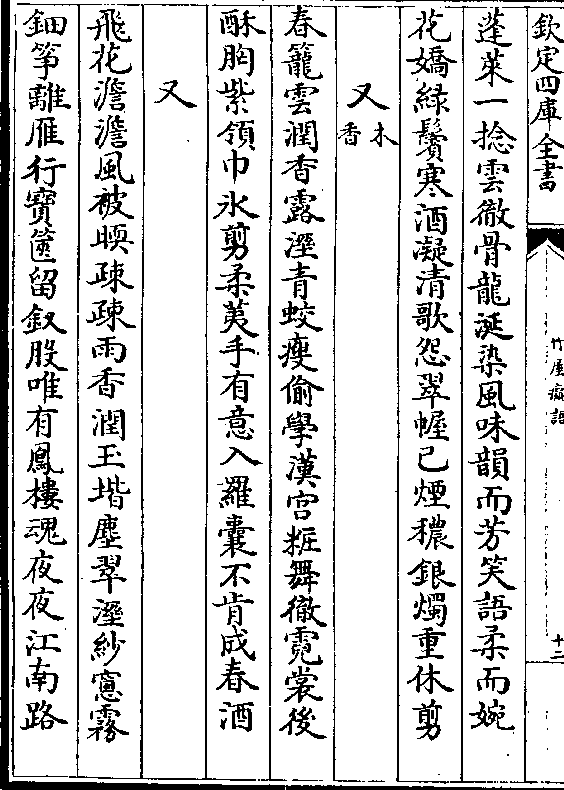 欽定四庫全書
竹屋癡語
十二
蓬萊一捻雲徹骨龍涎染風味韻而芳笑語柔而婉
花嬌綠鬢寒酒凝清歌怨翠幄已煙穠銀燭重休剪
又木香
春籠雲潤香露溼青蛟瘦偷學漢宮粧舞徹霓裳後
酥胸紫領巾氷剪柔荑手有意入羅囊不肯成春酒
又
飛花澹澹風被暎疎疎雨香潤玉堦塵翠溼紗窻霧
鈿筝離雁行寶篋留釵股唯有鳳樓魂夜夜江南路